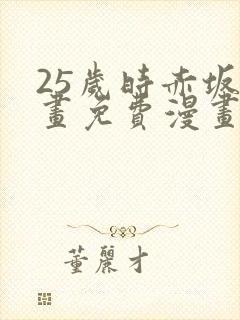 25歲時赤坂
畫免費漫畫
董麗才